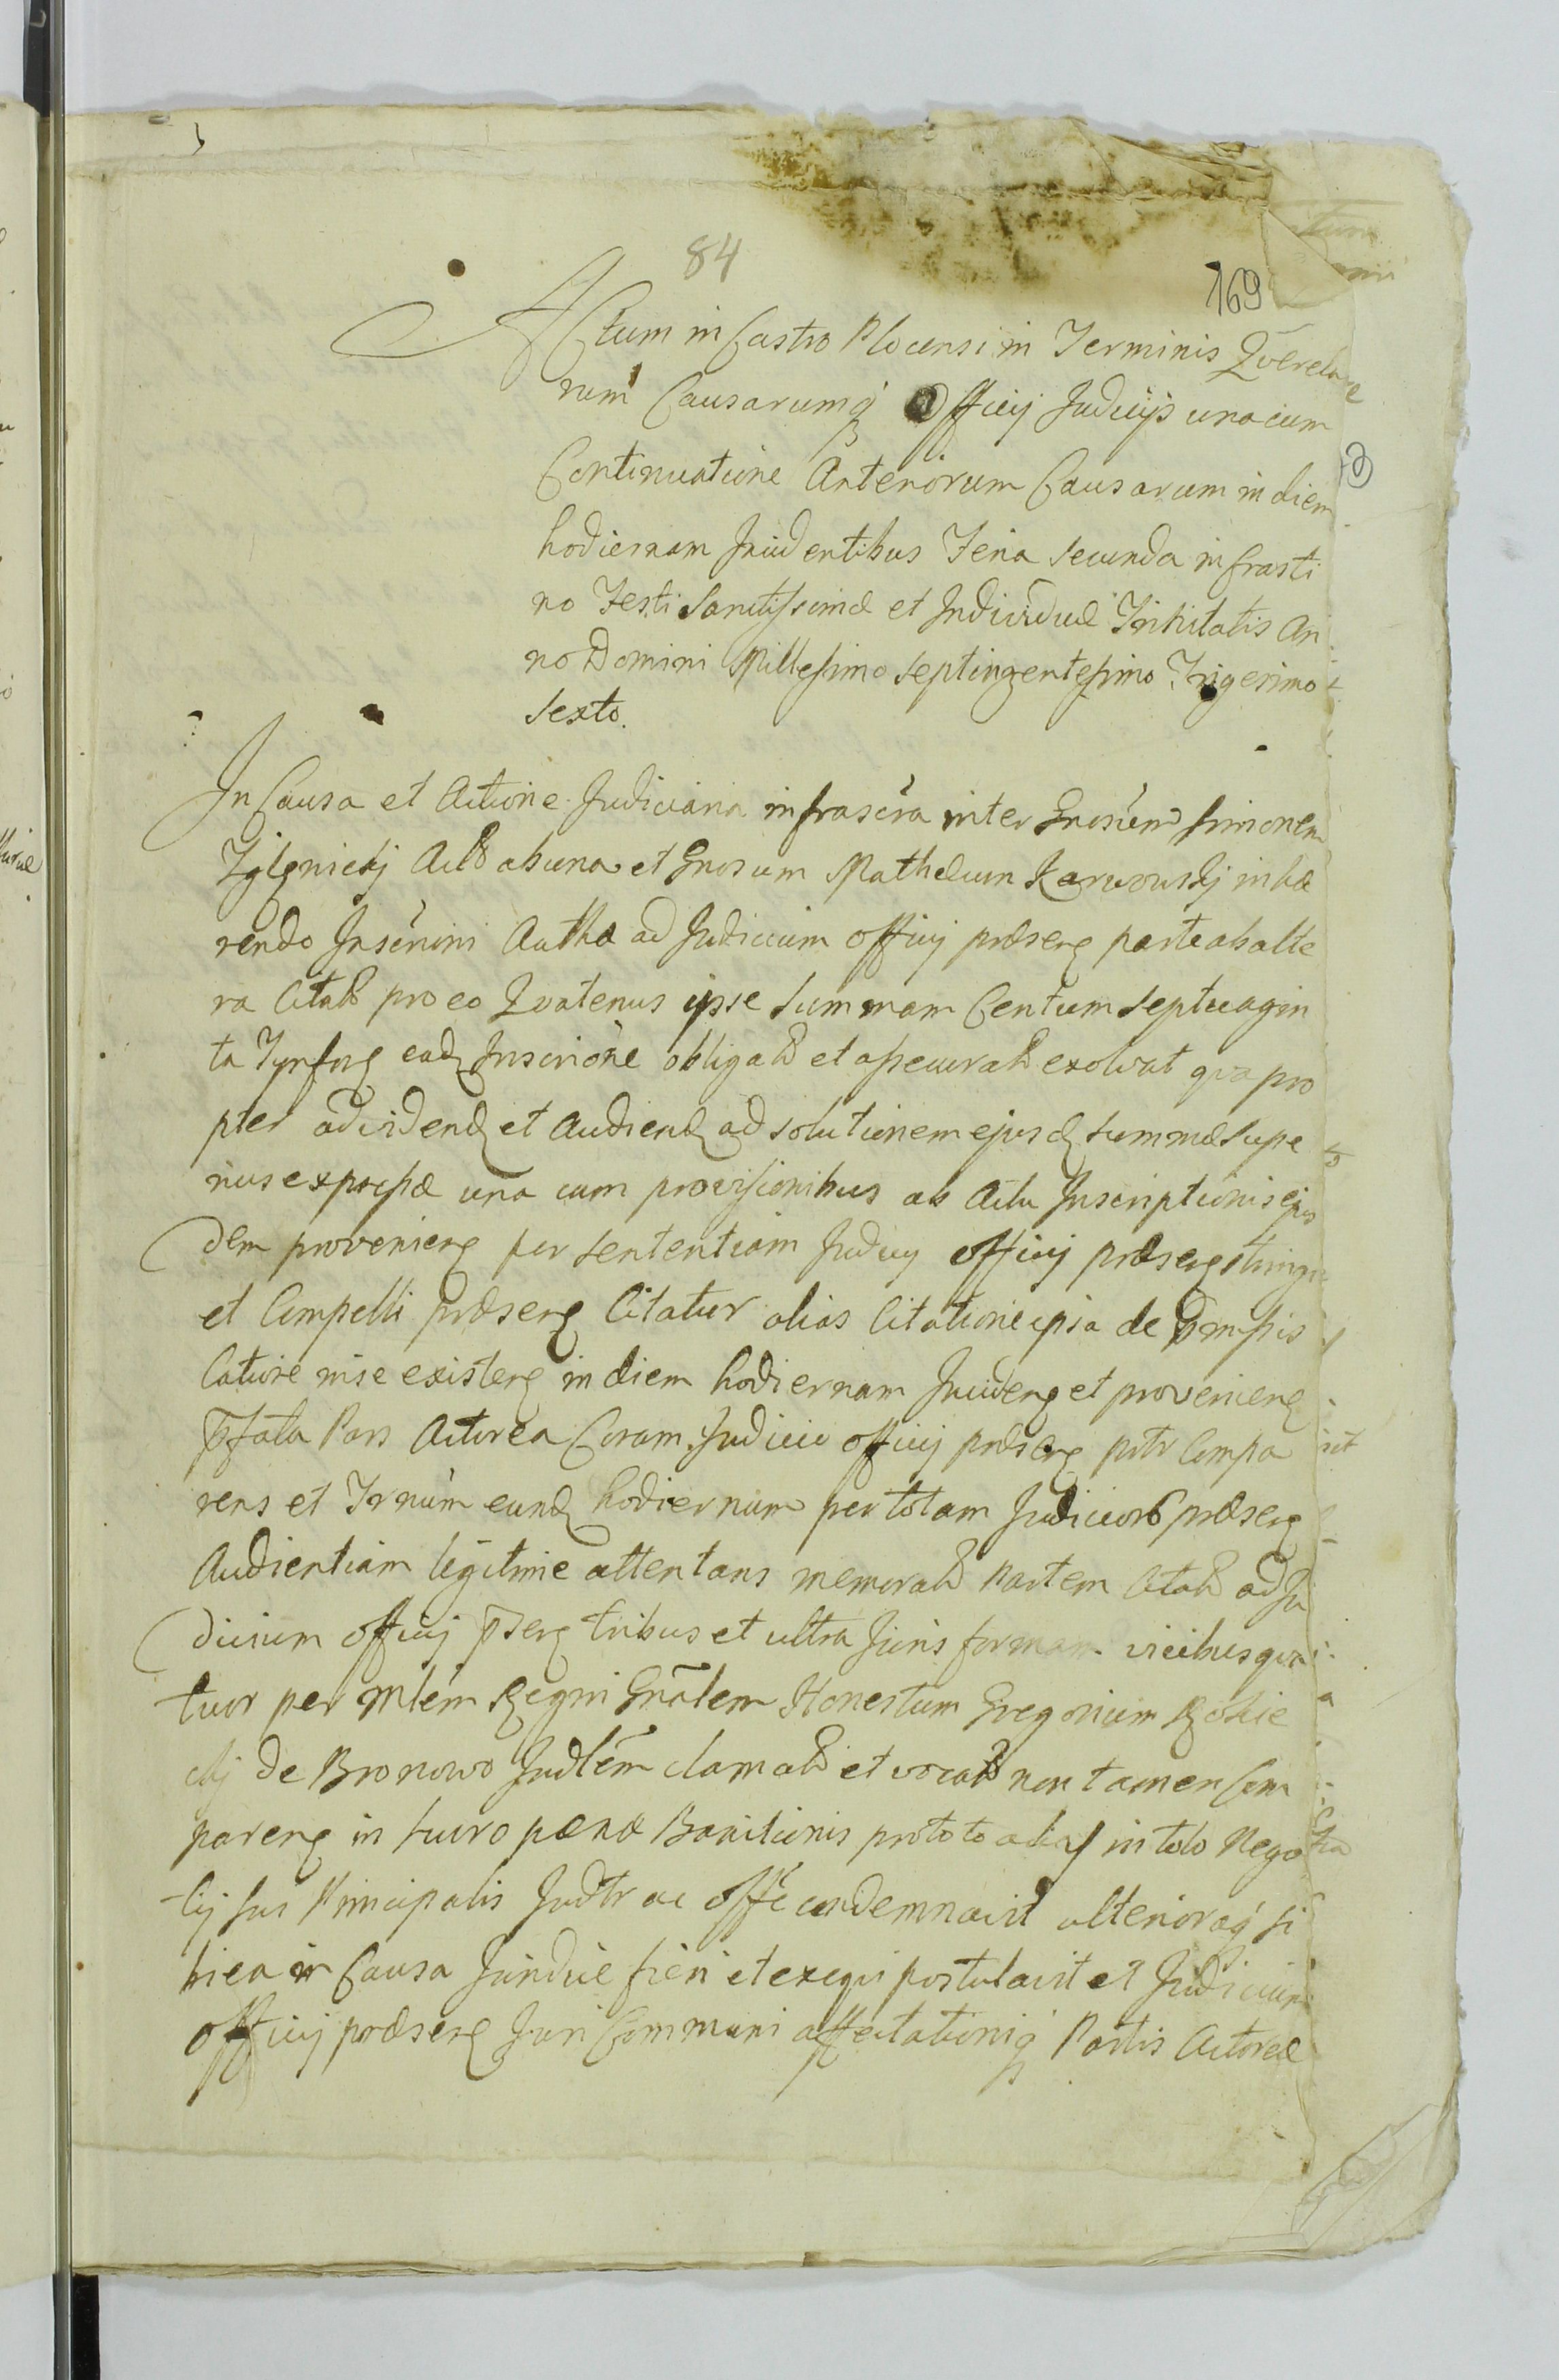 84
169
Actum in Castro Plocensi in Terminis Qverela
rum Causarumq Officij Judicijs una cum
Continuatione Anteriorum Causarum in diem
hodiernam Incidentibus Feria Secunda in Crasti
no Festi Sanctissimæ et Individuæ Trinitatis An
no Domini Millesimo Septingentesimo Trigesimo
Sexto.
In Causa et Actione Judiciaria infrascra inter Gnosum Simonem
Zglenickj Act ab una et Gnosum Mathæum Karwowskj inhæ
rendo Inscrioni Authæ ad Judicium officij præsens parte ab alte
ra Citat pro eo Qvatenus ipse Summam Centum Septuagin
ta Tynfos eadq Inscrione obligat et assecurat exolvat qva pro
pter ad vidend et Audiend ad solutionem ejusd Summæ supe
rius expressæ una cum provisionibus ab Actu Inscriptionis ejus
dem provenien per Sententiam Judicij officij præsen stringi
et Compelli præsens Citatur alias Citatione ipsa de præmissis
latiore in se existen in diem hodiernam Inciden et provenien
Pfata Pars Actorea Coram Judicio officij præsen pntr Compa
rens et Trnum eund hodiernum per totam Judicior præsen
Audientiam legitime attentans memorat Partem Citat ad Ju
dicium officij Psen tribus et ultra Juris formam vicibus qva
tuor per Mlem Regni Gnalem Honestum Gregorium Rokic
kj de Bronowo Judlem clamat et vocat non tamen Com
paren in lucro pænæ Banitionis pro toto alias in toto Nego
tij sui Principalis Judlr ac offe condemnavit ulterioraq si
bi ea in Causa Juridice fieri et exeqvi postulavit et Judicium
officij præsens Juri Communi affectationiq Partis Actoreæ